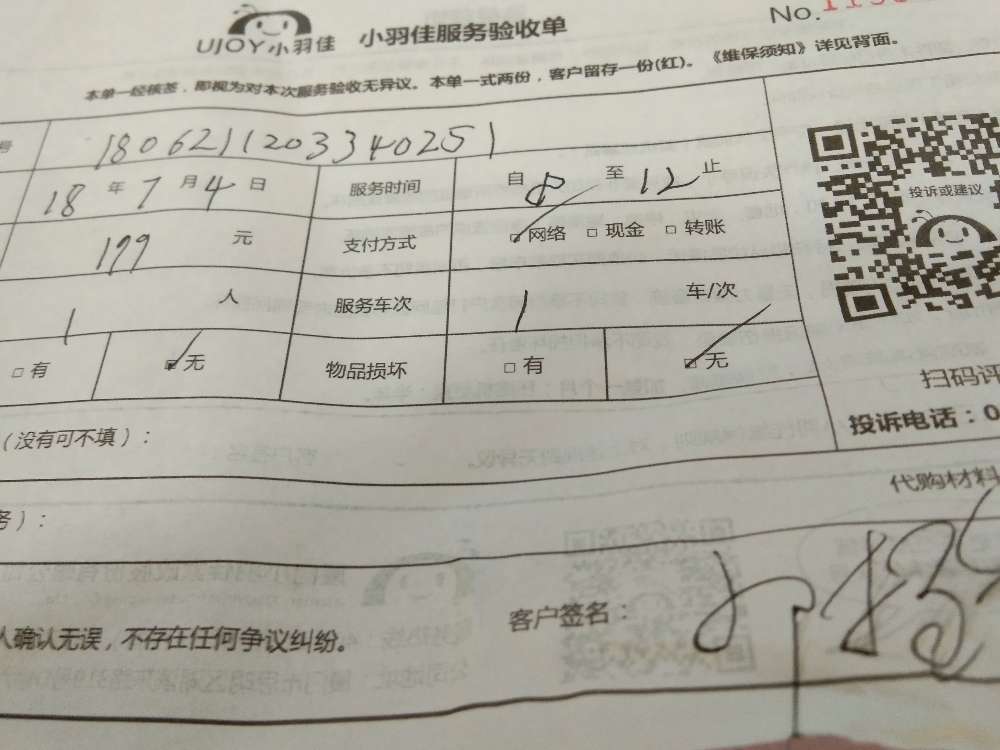 UJOY小羽佳 小羽佳服务验收单
No.
本单一经核签，即视为对本次服务验收无异议。本单一式两份，客户留存一份(红)。《维保须知》详见背面。
号 1806211203340251
18年7月4日 服务时间 自8至12止
199元 支付方式 网络 现金 转账
1人 服务车次 1车/次
有 无 物品损坏 有 无
投诉或建议
扫码评
投诉电话：0
（没有可不填）：
代购材料
务）：
人确认无误，不存在任何争议纠纷。
客户签名：